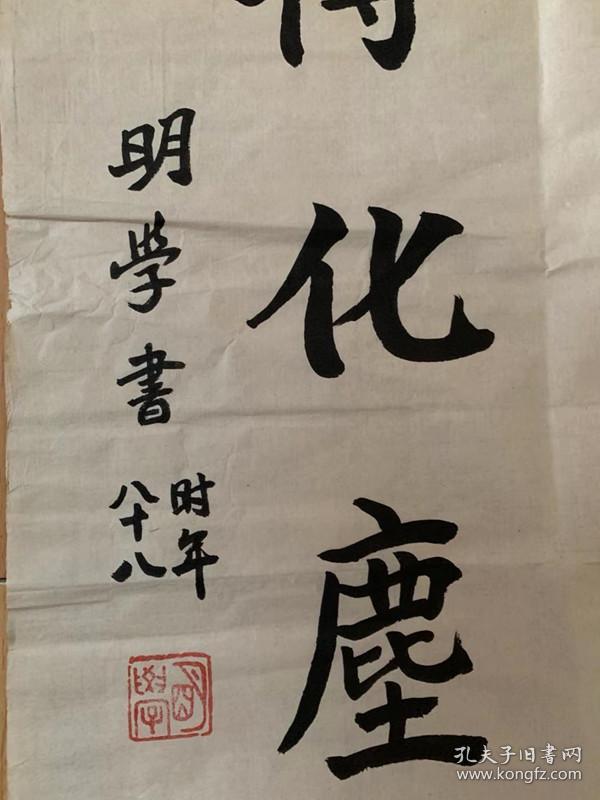 化塵
明學書
时年
八十八
明學
孔夫子旧書网
www.kongfz.com